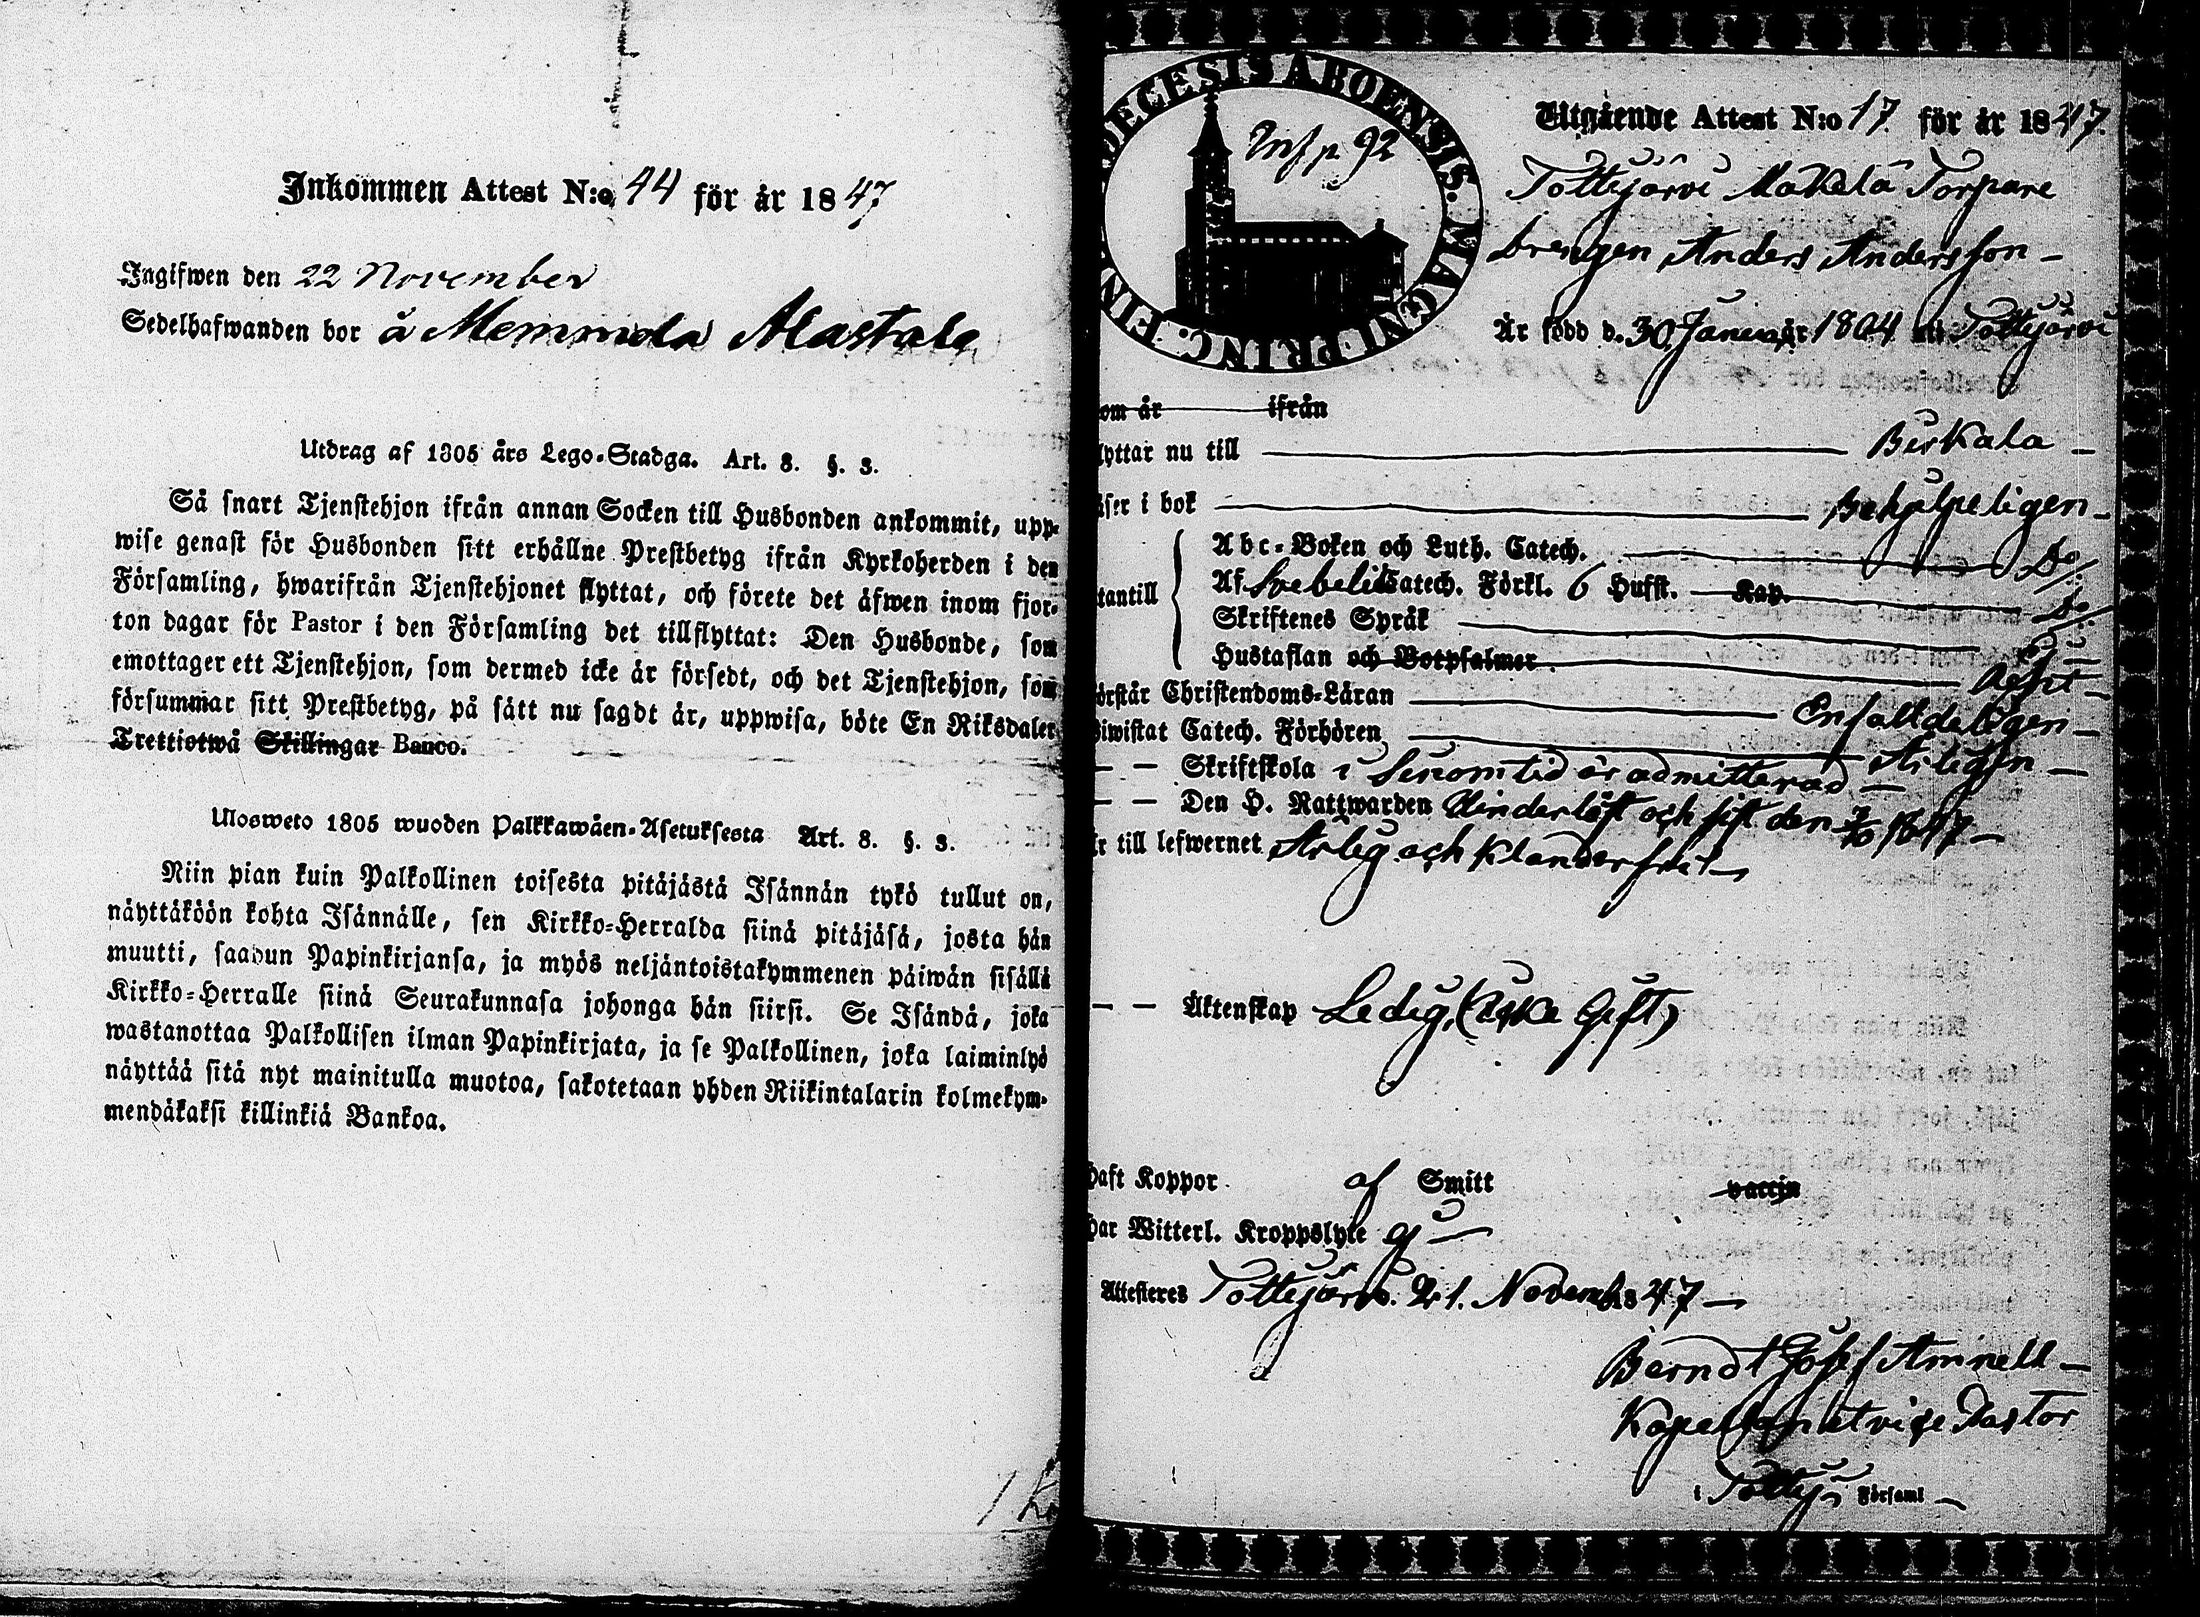 Inkommen Attest N:o 44 för år 1847
Ingifwen den 22 November
Sedelhafwanden bor å Memmola Alastalo
Utdrag af 1805 års Lego-Stadga. Art. 8. §. 3.
Så snart Tjenstehjon ifrån annan Socken till Husbonden ankommit, upp-
wise genast för Husbonden sitt erhållne Prestbetyg ifrån Kyrkoherden i den
Församling, hwarifrån Tjenstehjonet flyttat, och förete det äfwen inom fjor-
ton dagar för Pastor i den Församling det tillflyttat: Den Husbonde, som
emottager ett Tjenstehjon, som dermed icke är försedt, och det Tjenstehjon, som
försummar sitt Prestbetyg, på sätt nu sagdt är, uppwisa, böte En Riksdaler
Trettiotwå Skillingar Banco.
Ulosweto 1805 wuoden Palkkawäen-Asetuksesta Art. 8. §. 3.
Niin pian kuin Palkollinen toisesta pitäjästä Isännän tykö tullut on,
näyttäköön kohta Isännälle, sen Kirkko-Herralda siinä pitäjäsä, josta hän
muutti, saadun Papinkirjansa, ja myös neljäntoistakymmenen päiwän sisällä
Kirkko-Herralle siinä Seurakunnasa johonga hän siirsi. Se Isändä, joka
wastanottaa Palkollisen ilman Papinkirjata, ja se Palkollinen, joka laiminlyö
näyttää sitä nyt mainitulla muotoa, sakotetaan yhden Riikintalarin kolmekym-
mendäkaksi killinkiä Bankoa.
DECESIS ABOENSIS. MAGNI PRINC. FIN
p 92
Utgående Attest N:o 17. för år 1847.
Tottijärvi Mäkelä Torpare
Drengen Anders Andersson
Är född d. 30 Januar 1804 i Tottijärvi
om år ifrån
lyttar nu till Birkala
äser i bok Behjelpeligen
tantill
Abc-Boken och Luth. Catech. Do
Af Svebelii Catech. Förkl. 6 Hufst. Kap. Do
Skriftenes Språk
Hustaflan och Botpsalmer
örstår Christendoms-Läran Enfalldeligen
Biwistat Catech. Förhören Årligen
— — Skriftskola i sinom tid är admitterad
— — Den H. Nattwarden Oinderlåst och sist den 1847
r till lefwernet Ärlig och Klanderfri
— — Äktenskap Ledig, (Gift)
haft Koppor af Smitt vaccin
har Witterl. Kroppslyte ej
Attesteras Tottijärvi. 21. Novemb. 1847
Berndt Josef Aminell
Kapellan etvice Pastor
i Tottij Församl